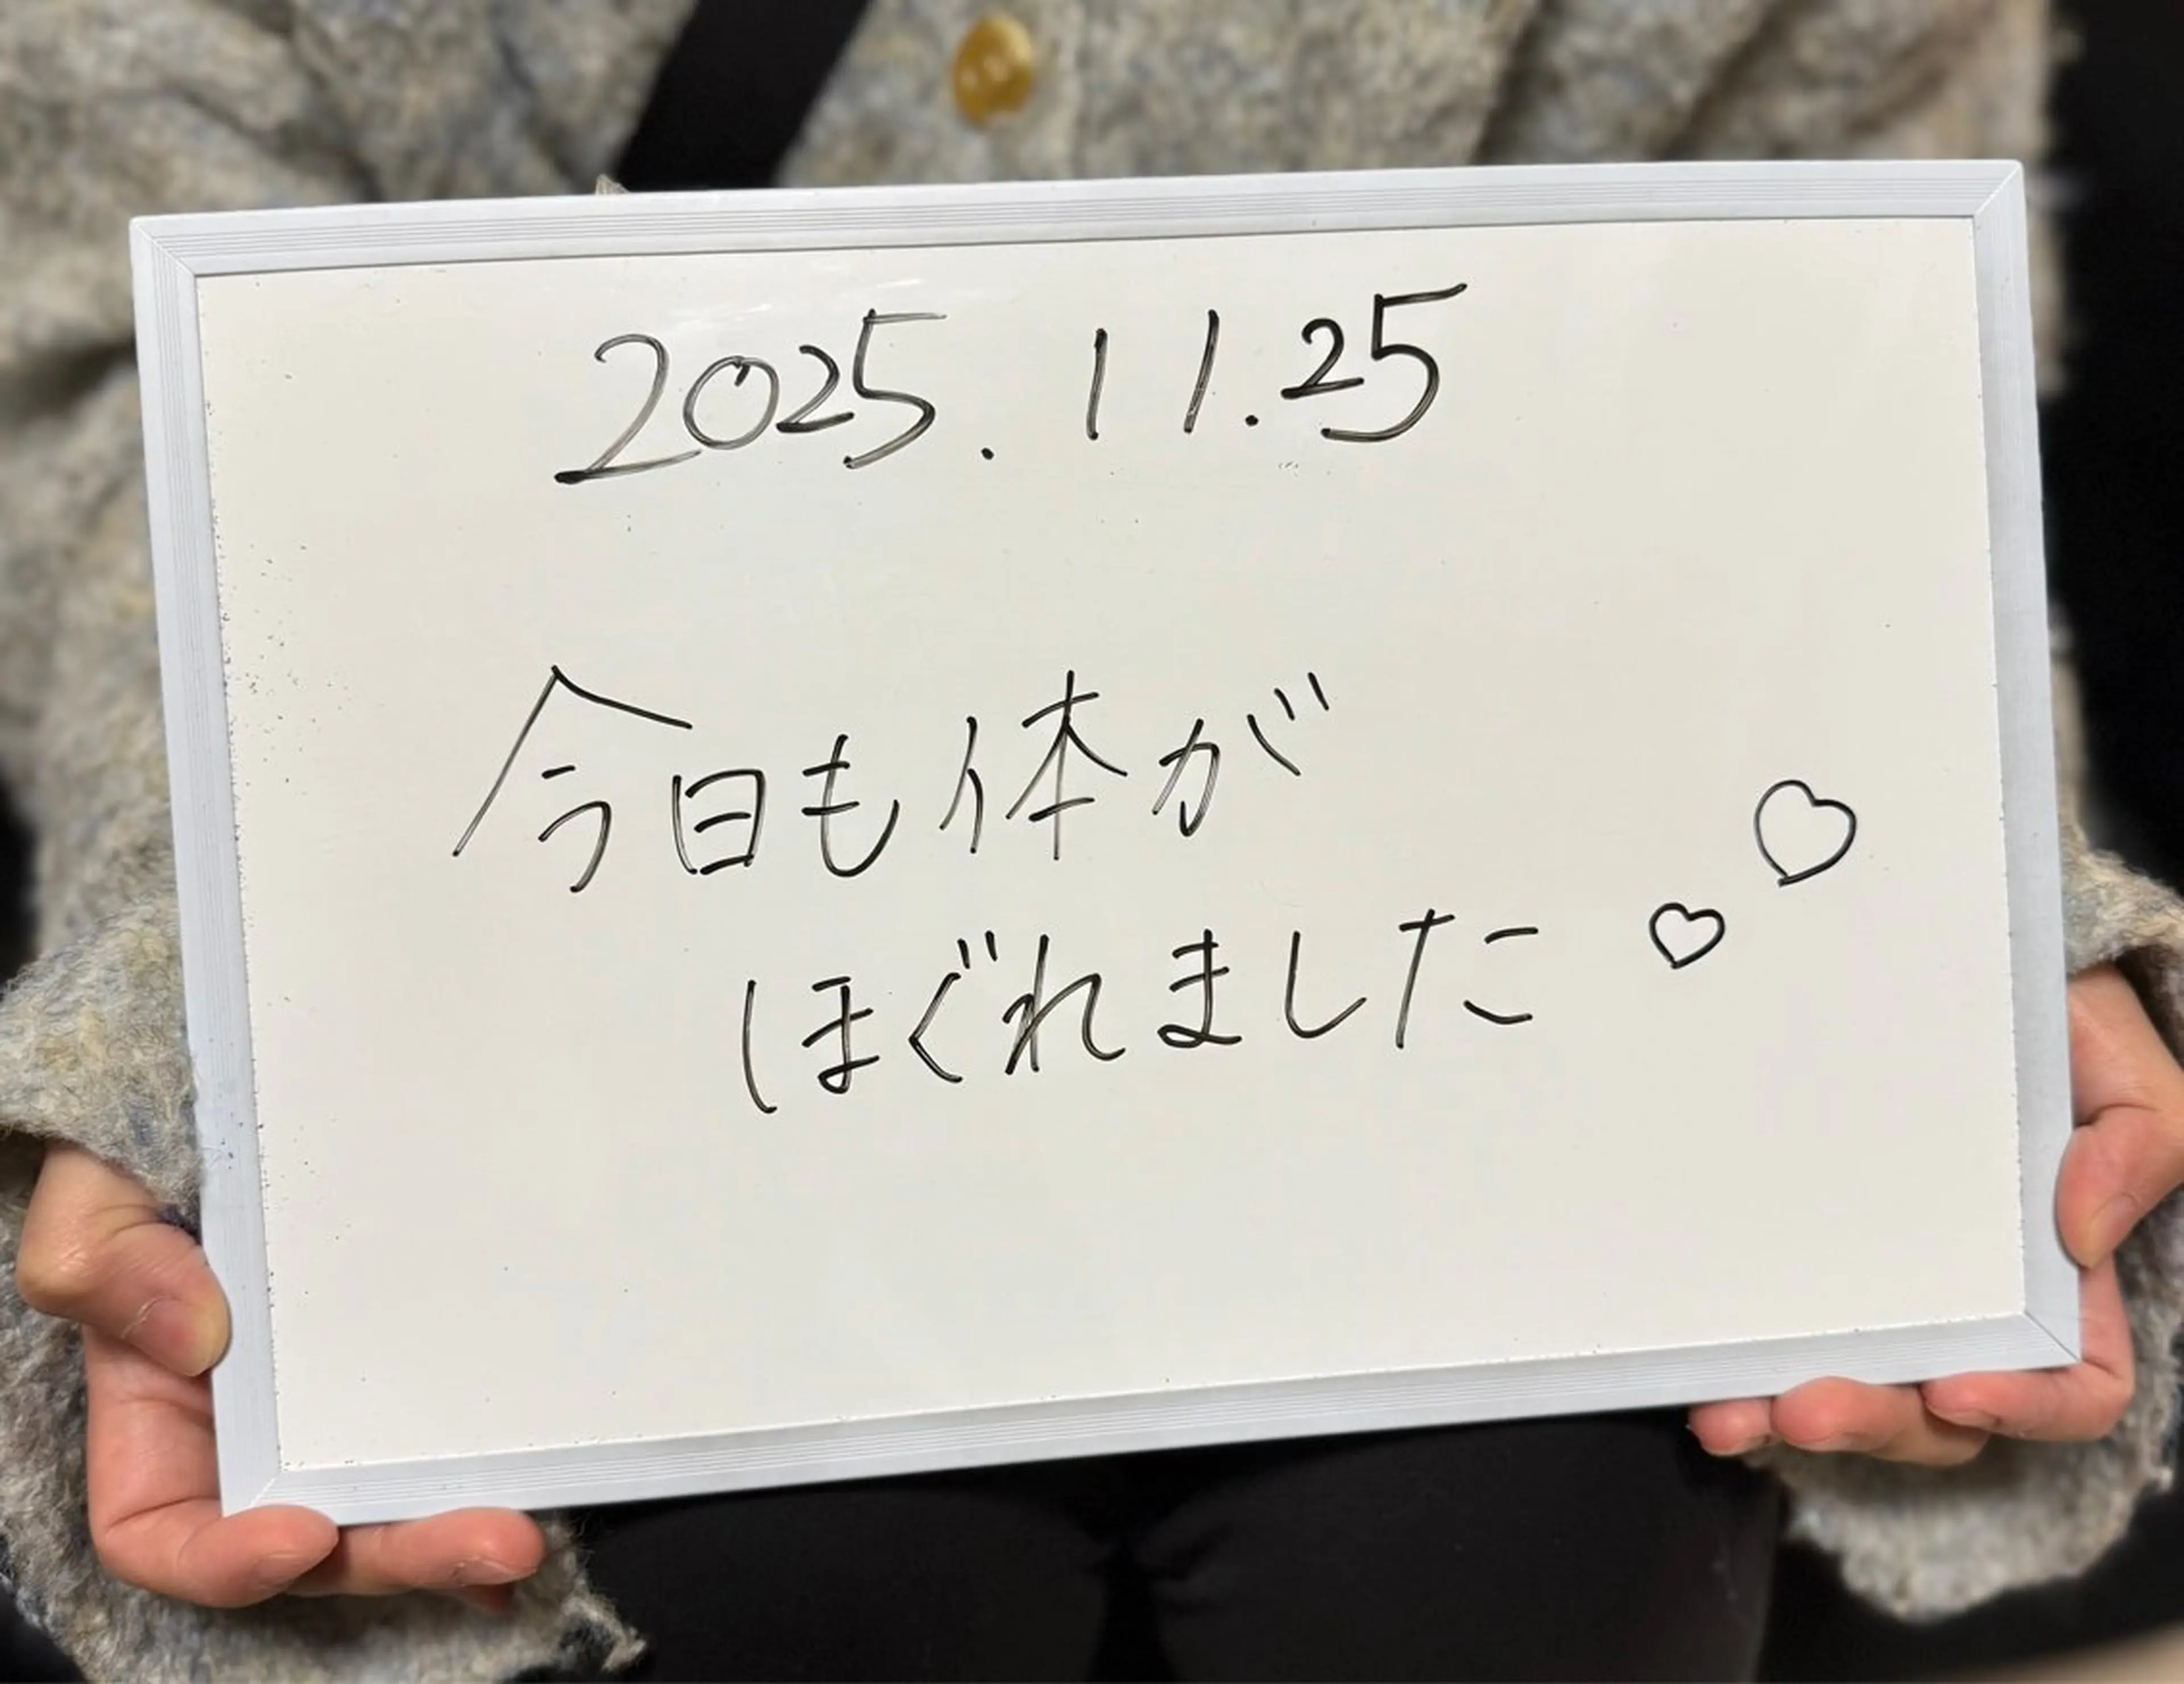 2025.11.25
今日も体が
ほぐれました♡♡